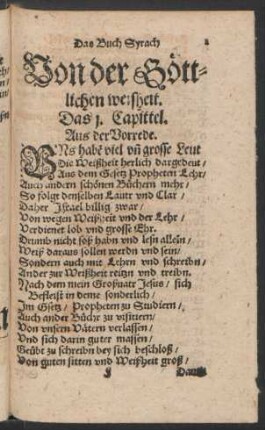 Das Buch Syrach
Von der Gött-
lichen weisheit.
Das j. Capittel.
Aus der Vorrede.
UNs habē viel vñ grosse Leut
Die Weißheit herlich dargebeut /
Aus dem Gesetz Propheten Lehr /
Auch andern schönen Büchern mehr /
So folgt denselben Lautr vnd Clar /
Daher Israel billig zwar /
Von wegen Weißheit vnd der Lehr /
Verdienet lob vnd grosse Ehr.
Drumb nicht soln habn vnd lesn allein /
Weiß daraus sollen werdn vnd sein /
Sondern auch mit Lehrn vnd schreibn /
Ander zur Weißheit reitzn vnd treibn.
Nach dem mein Großuatr Jesus / sich
Befleist in deme sonderlich /
Im Gsetz / Propheten zu Studiern /
Auch ander Büchr zu visitiern /
Von vnsern Vätern verlassen /
Vnd sich darin guter massen /
Geübt zu schreibn bey sich beschloß /
Von guten sitten vnd Weißheit groß /